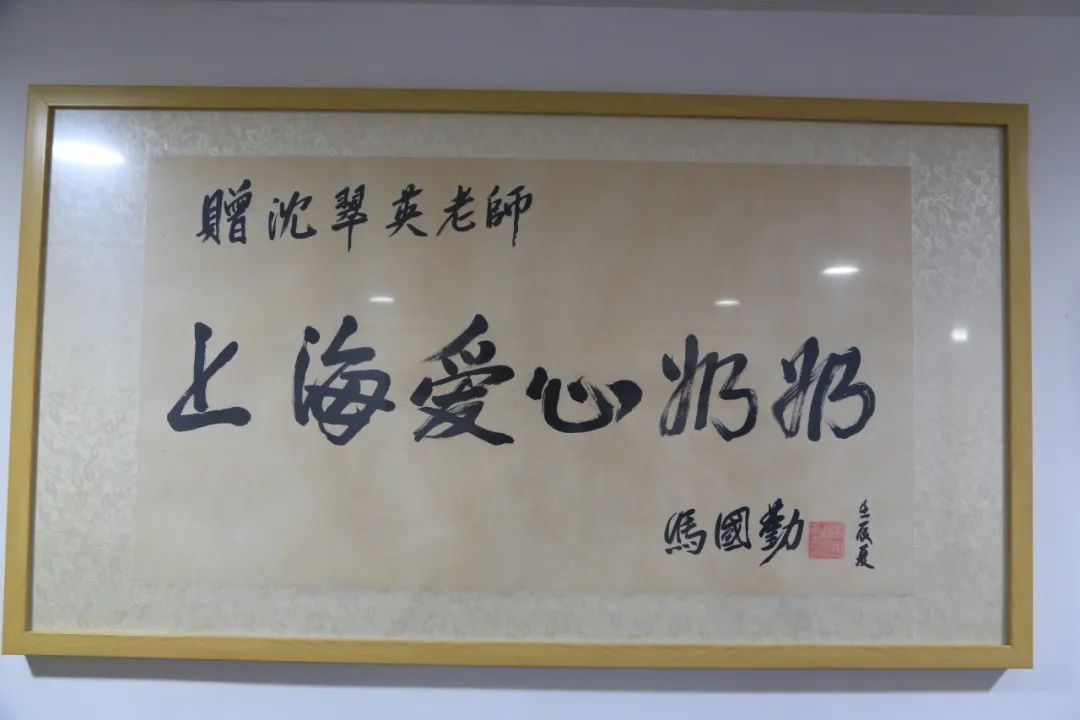 贈沈翠英老師
上海爱心奶奶
馬國勤
壬辰夏